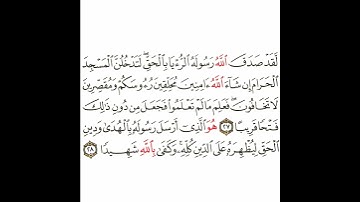 لَّقَدْ صَدَقَ ٱللَّهُ رَسُولَهُ ٱلرُّءْيَا بِٱلْحَقِّ ۖ لَتَدْخُلُنَّ ٱلْمَسْجِدَ
ٱلْحَرَامَ إِن شَآءَ ٱللَّهُ ءَامِنِينَ مُحَلِّقِينَ رُءُوسَكُمْ وَمُقَصِّرِينَ
لَا تَخَافُونَ ۖ فَعَلِمَ مَا لَمْ تَعْلَمُوا۟ فَجَعَلَ مِن دُونِ ذَٰلِكَ
فَتْحًا قَرِيبًا ٢٧ هُوَ ٱلَّذِىٓ أَرْسَلَ رَسُولَهُۥ بِٱلْهُدَىٰ وَدِينِ
ٱلْحَقِّ لِيُظْهِرَهُۥ عَلَى ٱلدِّينِ كُلِّهِۦ ۚ وَكَفَىٰ بِٱللَّهِ شَهِيدًا ٢٨